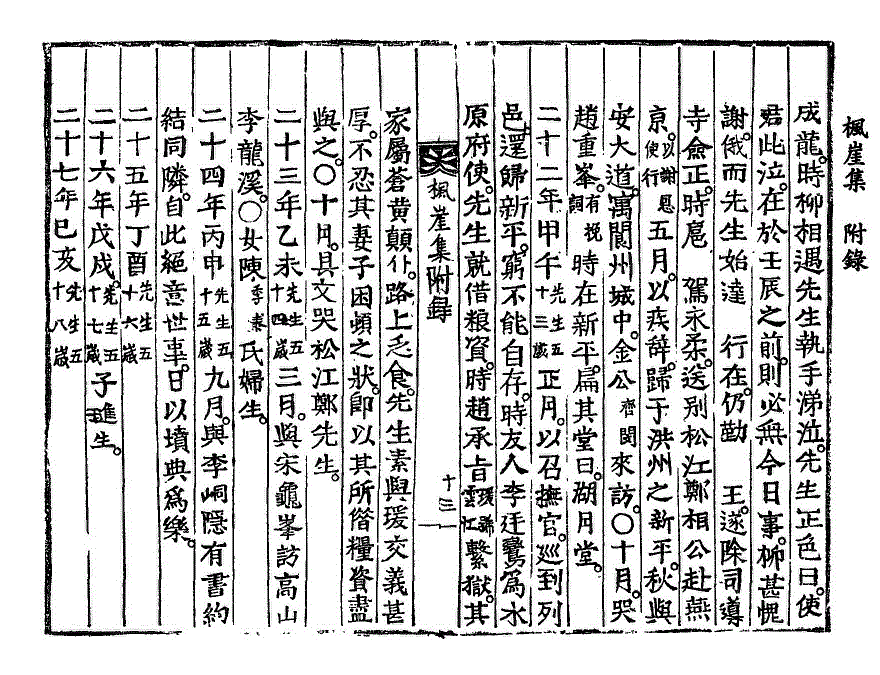 楓崖集 附錄
成龍。時柳相遇先生執手涕泣。先生正色曰。使
君此泣。在於壬辰之前。則必無今日事。柳甚愧
謝。俄而先生始達 行在。仍勤 王。遂除司導
寺僉正。時扈 駕永柔。送別松江鄭相公赴燕
京。以謝恩使行 五月。以疾辭。歸于洪州之新平。秋。與
安大道。寓閬州城中。金公齊閔來訪。○十月。哭
趙重峯。有挽詞 時在新平。扁其堂曰。湖月堂。
二十二年甲午先生五十三歲 正月。以召撫官。巡到列
邑。還歸新平。窮不能自存。時友人李廷鸑爲水
原府使。先生就借粮資。時趙承旨瑗號雲江繫獄。其
楓崖集附錄 十三
家屬蒼黃顛仆。路上乏食。先生素與瑗交義甚
厚。不忍其妻子困頓之狀。卽以其所偕糧資盡
與之。○十月。具文哭松江鄭先生。
二十三年乙未先生五十四歲 三月。與宋龜峯訪高山
李龍溪。○女陳季泰氏婦生。
二十四年丙申先生五十五歲 九月。與李峒隱有書約
結同隣。自此絕意世事。日以墳典爲樂。
二十五年丁酉先生五十六歲
二十六年戊戌。先生五十七歲 子璡生。
二十七年己亥先生五十八歲